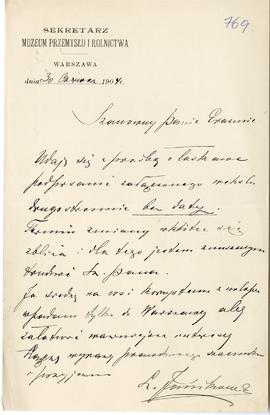 769.
SEKRETARZ
MUZEUM PRZEMYSŁU I ROLNICTWA
WARSZAWA
dnia 30 Czerwca 1904 r.
Szanowny Panie Erazmie
Udaję się z prośbą o łaskawe
podpisanie załączonego wekslu
drugostronnie bez daty.
Termin zmiany zbliża się
i dla tego jestem zmuszonym
trudzić Sz. Pana.
Ja siedzę na wsi korzystam z urlopu
wpadam tylko do Warszawy aby
załatwić ważniejsze interesy
Łączę wyrazy prawdziwego szacunku
i przyjaźni